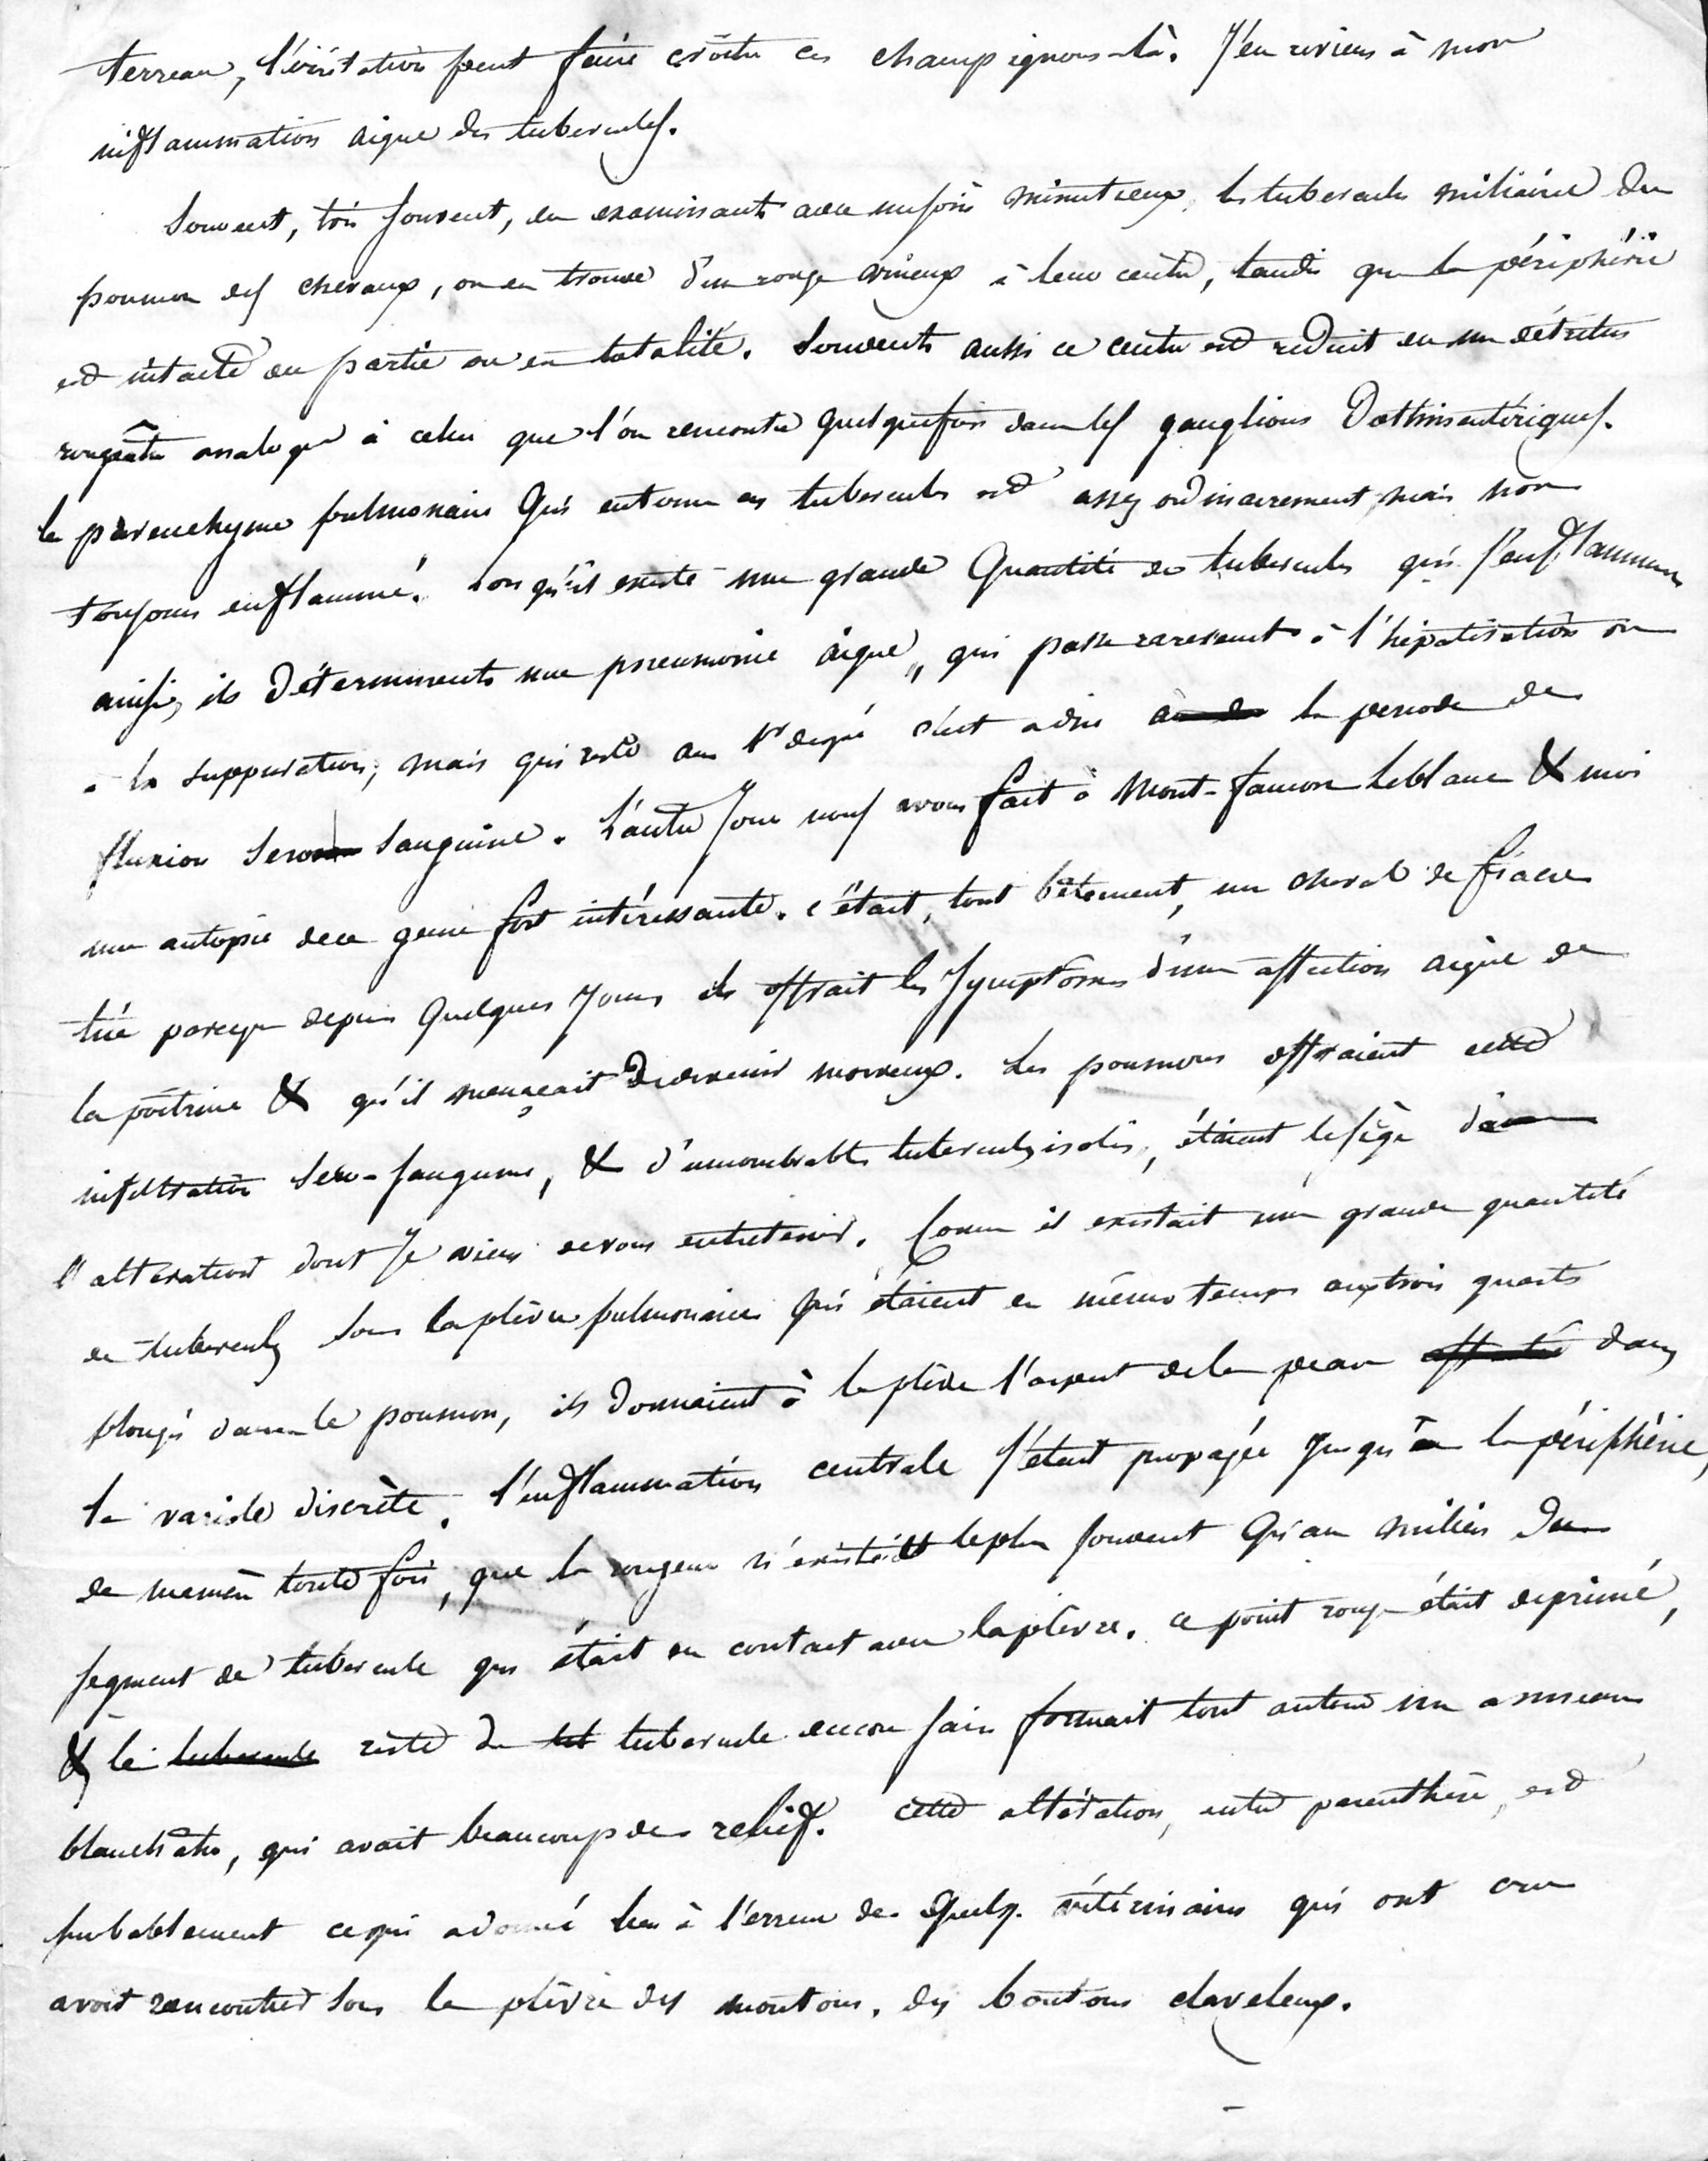 terreau, l'irritation peut faire croître ces champignons-là. J'en reviens à mon
inflammation aigue des tubercules.
Souvent, très souvent, en examinant avec un soin minutieux, les tubercules miliaires du
poumon des chevaux, on en trouve d'un rouge vineux à leur centre, tandis que la périphérie
est intacte en partie ou en totalité. Souvent aussi ce centre est reduit en un détritus
rougeâtre analogue à celui que l'on rencontre quelquefois dans les ganglions
le parenchyme pulmonaire qui entoure ces tubercules est assez ordinairement, mais non
toujours enflammé. lorsqu'il existe une grande quantité de tubercules qui s'enflamment
ainsi, ils déterminent une pneumonie aigue, qui passe rarement à l'hépatisation ou
à la suppuration, mais qui reste au 1er degré c'est a dire la periode de
fluxion sero sanguine. L'autre jour nous avons fait à Mont-faucon Leblanc & moi
une autopsie de ce genre fort intéressante. c'était, tout bêtement, un cheval de fiacre
tué parceque depuis quelques jours il offrait les symptômes d'une affection aigüe de
la poitrine & qu'il menaçait de devenir morveux. Les poumons offraient cette
infiltration sero-sanguine, & d'innombrables tubercules isolés, étaient le siège de
l'alteration dont je viens de vous entretenir. Comme il existait une grande quantité
de tubercules sous la plèvre pulmonaire qui étaient en même temps aux trois quarts
plongés dans le poumon, ils donnaient à la plèvre l'aspect de la peau affectée dans
la variole discrète. l'inflammation centrale s'était propagée jusqu'à la périphérie,
de manière toutefois, que la rougeur n'existait le plus souvent qu'au milieu du
segment de tubercule qui était en contact avec la plèvre. ce point rouge était deprimé,
& le tubercule reste du tub tubercule encore sain formait tout autour un anneau
blanchatre, qui avait beaucoup de relief. cette altération, entre parenthèse, est
probablement ce qui a donné lieu à l'erreur de quelq. vétérinaires qui ont cru
avoir rencontrer sous la plèvre des moutons, des boutons claveleux.